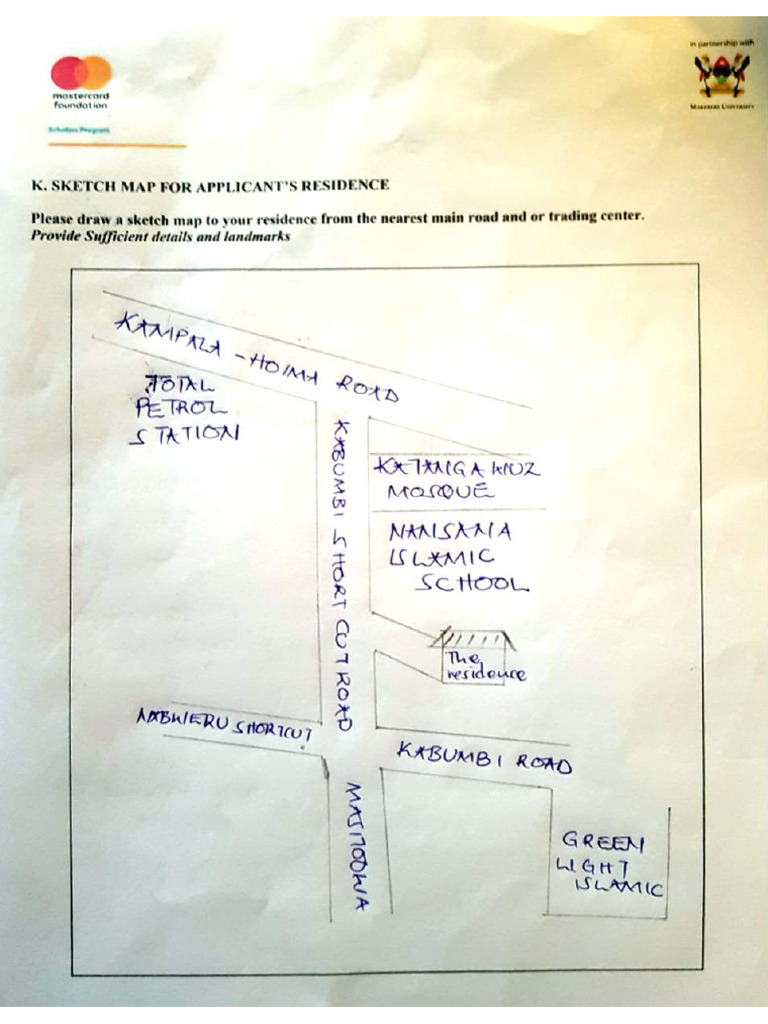 in partnership with
mastercard
foundation
Scholars Program
MAKERERE UNIVERSITY
K. SKETCH MAP FOR APPLICANT'S RESIDENCE
Please draw a sketch map to your residence from the nearest main road and or trading center.
Provide Sufficient details and landmarks
KAMPALA - HOIMA ROAD
TOTAL
PETROL
STATION
KABUMBI SHORT CUT ROAD
MOSQUE
NANSANA
ISLAMIC
SCHOOL
The
residence
NABWERU SHORTCUT
KABUMBI ROAD
GREEN
LIGHT
ISLAMIC